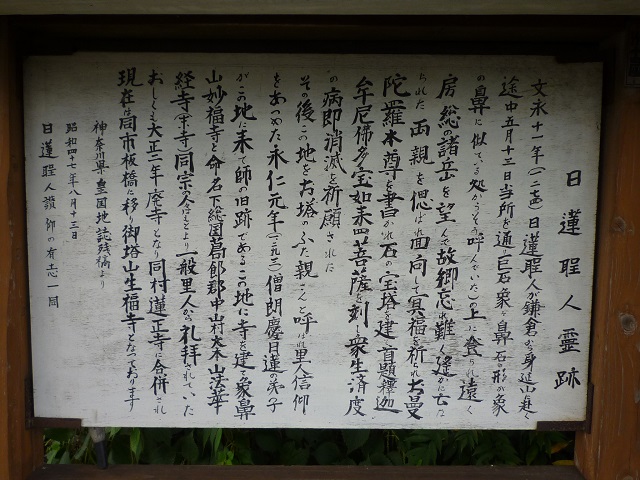 日蓮聖人霊跡
文永十一年（一二七四）日蓮聖人が鎌倉から身延山に赴く
途中五月十三日当所を通り巨石象ヶ鼻（石の形が象
の鼻に似ている処からそう呼んでいた）の上に登られ遠く
房総の諸岳を望んで故郷忘れ難く遙かに亡な
られた両親を偲ばれ回向して冥福を祈られお曼
陀羅本尊を書かれ石の宝塔を建て首題釋迦
牟尼佛多宝如来四菩薩を刻し衆生済度
の病即消滅を祈願された
その後この地をお塔のふた親さんと呼ばれ里人信仰
をあつめた永仁元年（一二九三）僧朗慶日蓮の弟子
がこの地に来て師の旧跡であるこの地に寺を建て象鼻
山妙福寺と命名下総国葛飾郡中山村大本山法華
経寺の末寺同宗の人はもとより一般里人から礼拝されていた
おしくも大正二年廃寺となり同村蓮正寺に合併され
現在は同市板橋に移り御塔山生福寺となっております
神奈川県皇国地誌残稿より
昭和四十二年八月十三日
日蓮聖人讃仰の有志一同